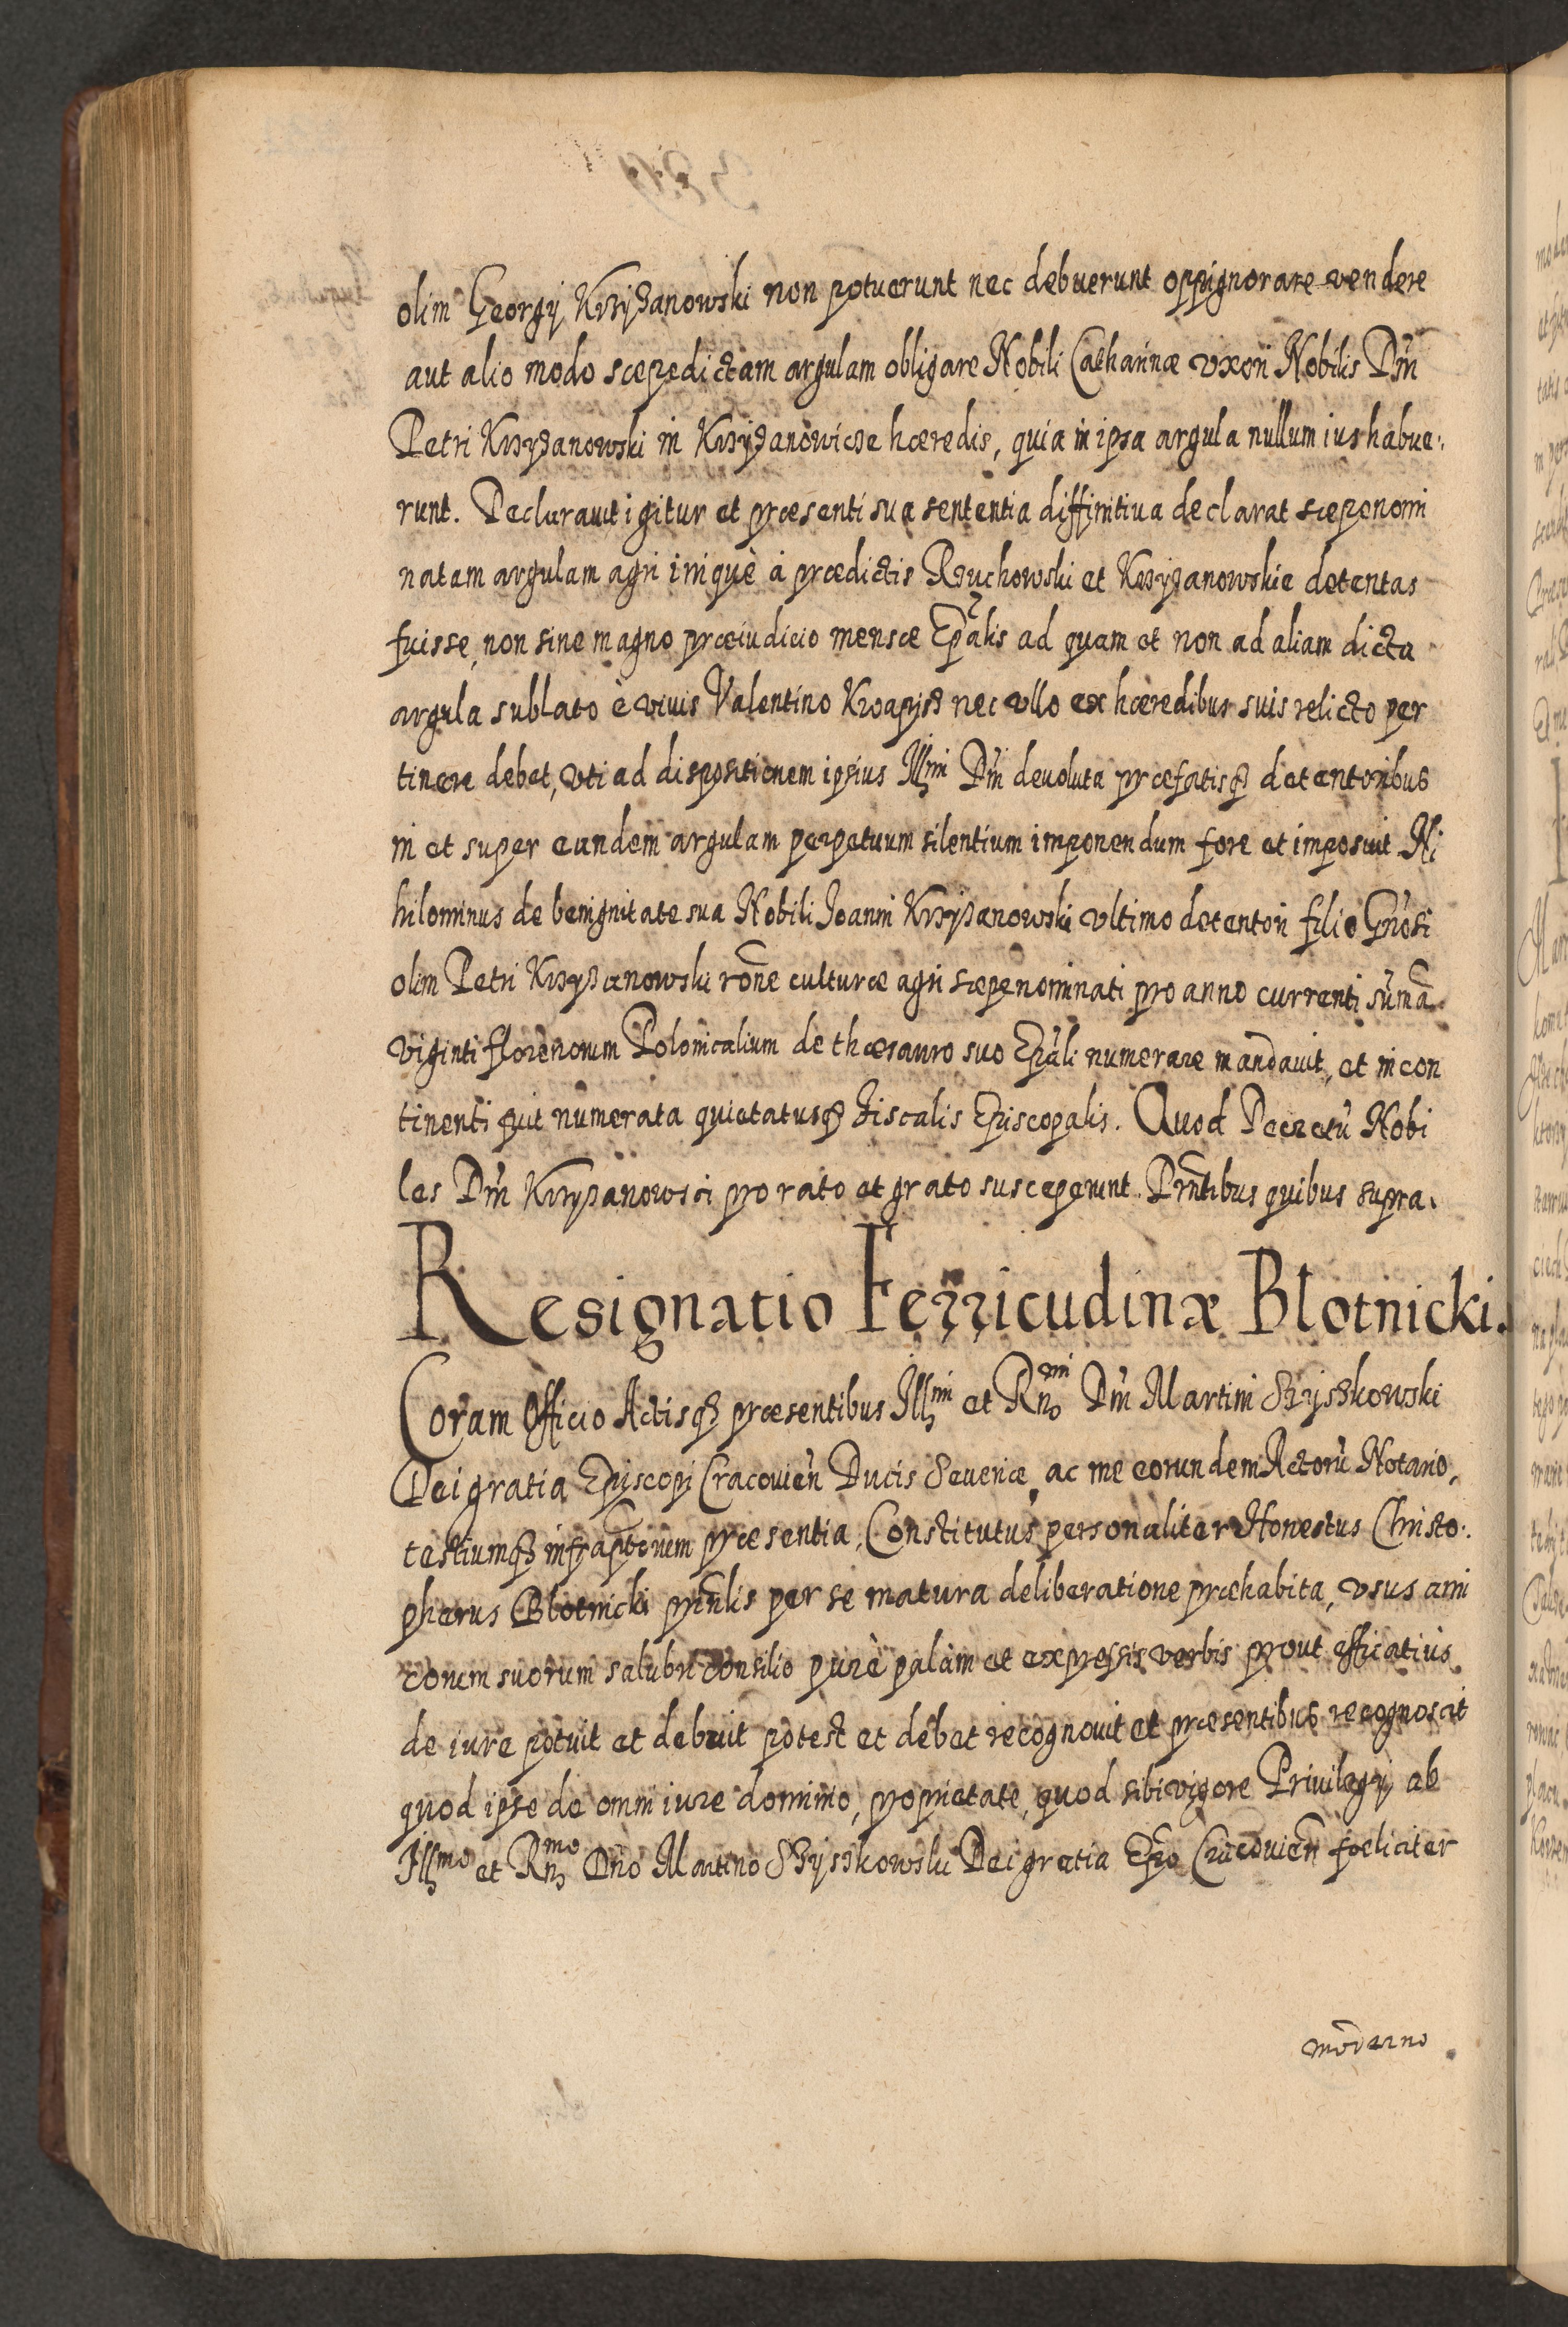 olim Georgij Krzyżanowski non potuerunt nec debuerunt oppignorare vendere
aut alio modo sæpedictam argulam obligare Nobili Catharinæ vxori Nobilis Dñi
Petri Krzyżanowski in Krzyżanowicze hæredis, quia in ipsa argula nullum ius habue:
runt. Declarauit igitur et præsenti sua sententia diffinitiua declarat sæpenomi
natam argulam agri iniquè à prædictis Rzuchowski et Krzyżanowskie detentas
fuisse, non sine magno præiudicio mensæ Epãlis ad quam et non ad aliam dicta
argula sublato è viuis Valentino nec vllo ex hæredibus suis relicto per
tinere debet, vti ad dispositionem ipsius Illmi Dñi deuoluta præfatisq detentoribus
in et super eandem argulam perpetuum silentium imponendum fore et imposuit Ni
hilominus de benignitate sua Nobili Joanni Krzyżanowski vltimo detentori filio Gñosi
olim Petri Krzyżanowski rõne culturæ agri sæpenominati pro anno currenti sũmã
viginti florenorum Polonicalium de thæsauro suo Epãli numerare mandauit, et incon
tinenti fuit numerata quietatusq fiscalis Episcopalis. Quod Decretũ Nobi
les Dñi Krzyżanowsci pro rato et grato susceperunt. Pñtibus quibus supra.
Resignatio Ferricudinæ Blotnicki.
Coram Officio Actisq præsentibus Illmi et Rñdmi Dñi Martini Szyszkowski
Dei gratia Episcopi Cracouieñ Ducis Seueriæ, ac me eorundem Actorũ Notario,
testiumq infraptorum præsentia, Constitutus personaliter Honestus Christo:
pherus Blotnicki prñlis per se matura deliberatione præhabita, vsus ami
corum suorum salubri consilio purè palàm et expressis verbis prout efficatius
de iure potuit et debuit potest et debet recognouit et præsentibus recognoscit
quod ipse de omni iure dominio, proprietate, quod sibi vigore Priuilegij ab
Illmo et Rñdmo Dño Martino Szyszkowski Dei gratia Epõ Cracouieñ fœliciter
moderno